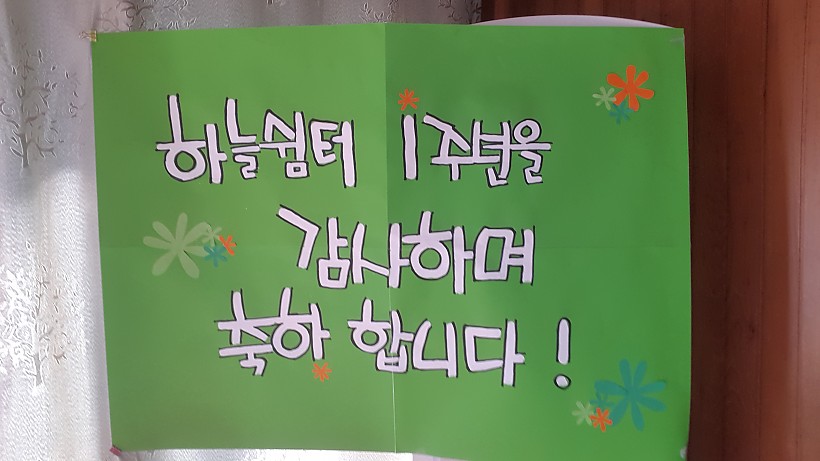 하늘쉼터 1주년을
감사하며
축하 합니다!